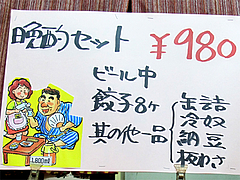 晩酌セット ¥980
ビール中
餃子8ヶ
其の他一品
缶詰
冷奴
納豆
板わさ
1,800ml